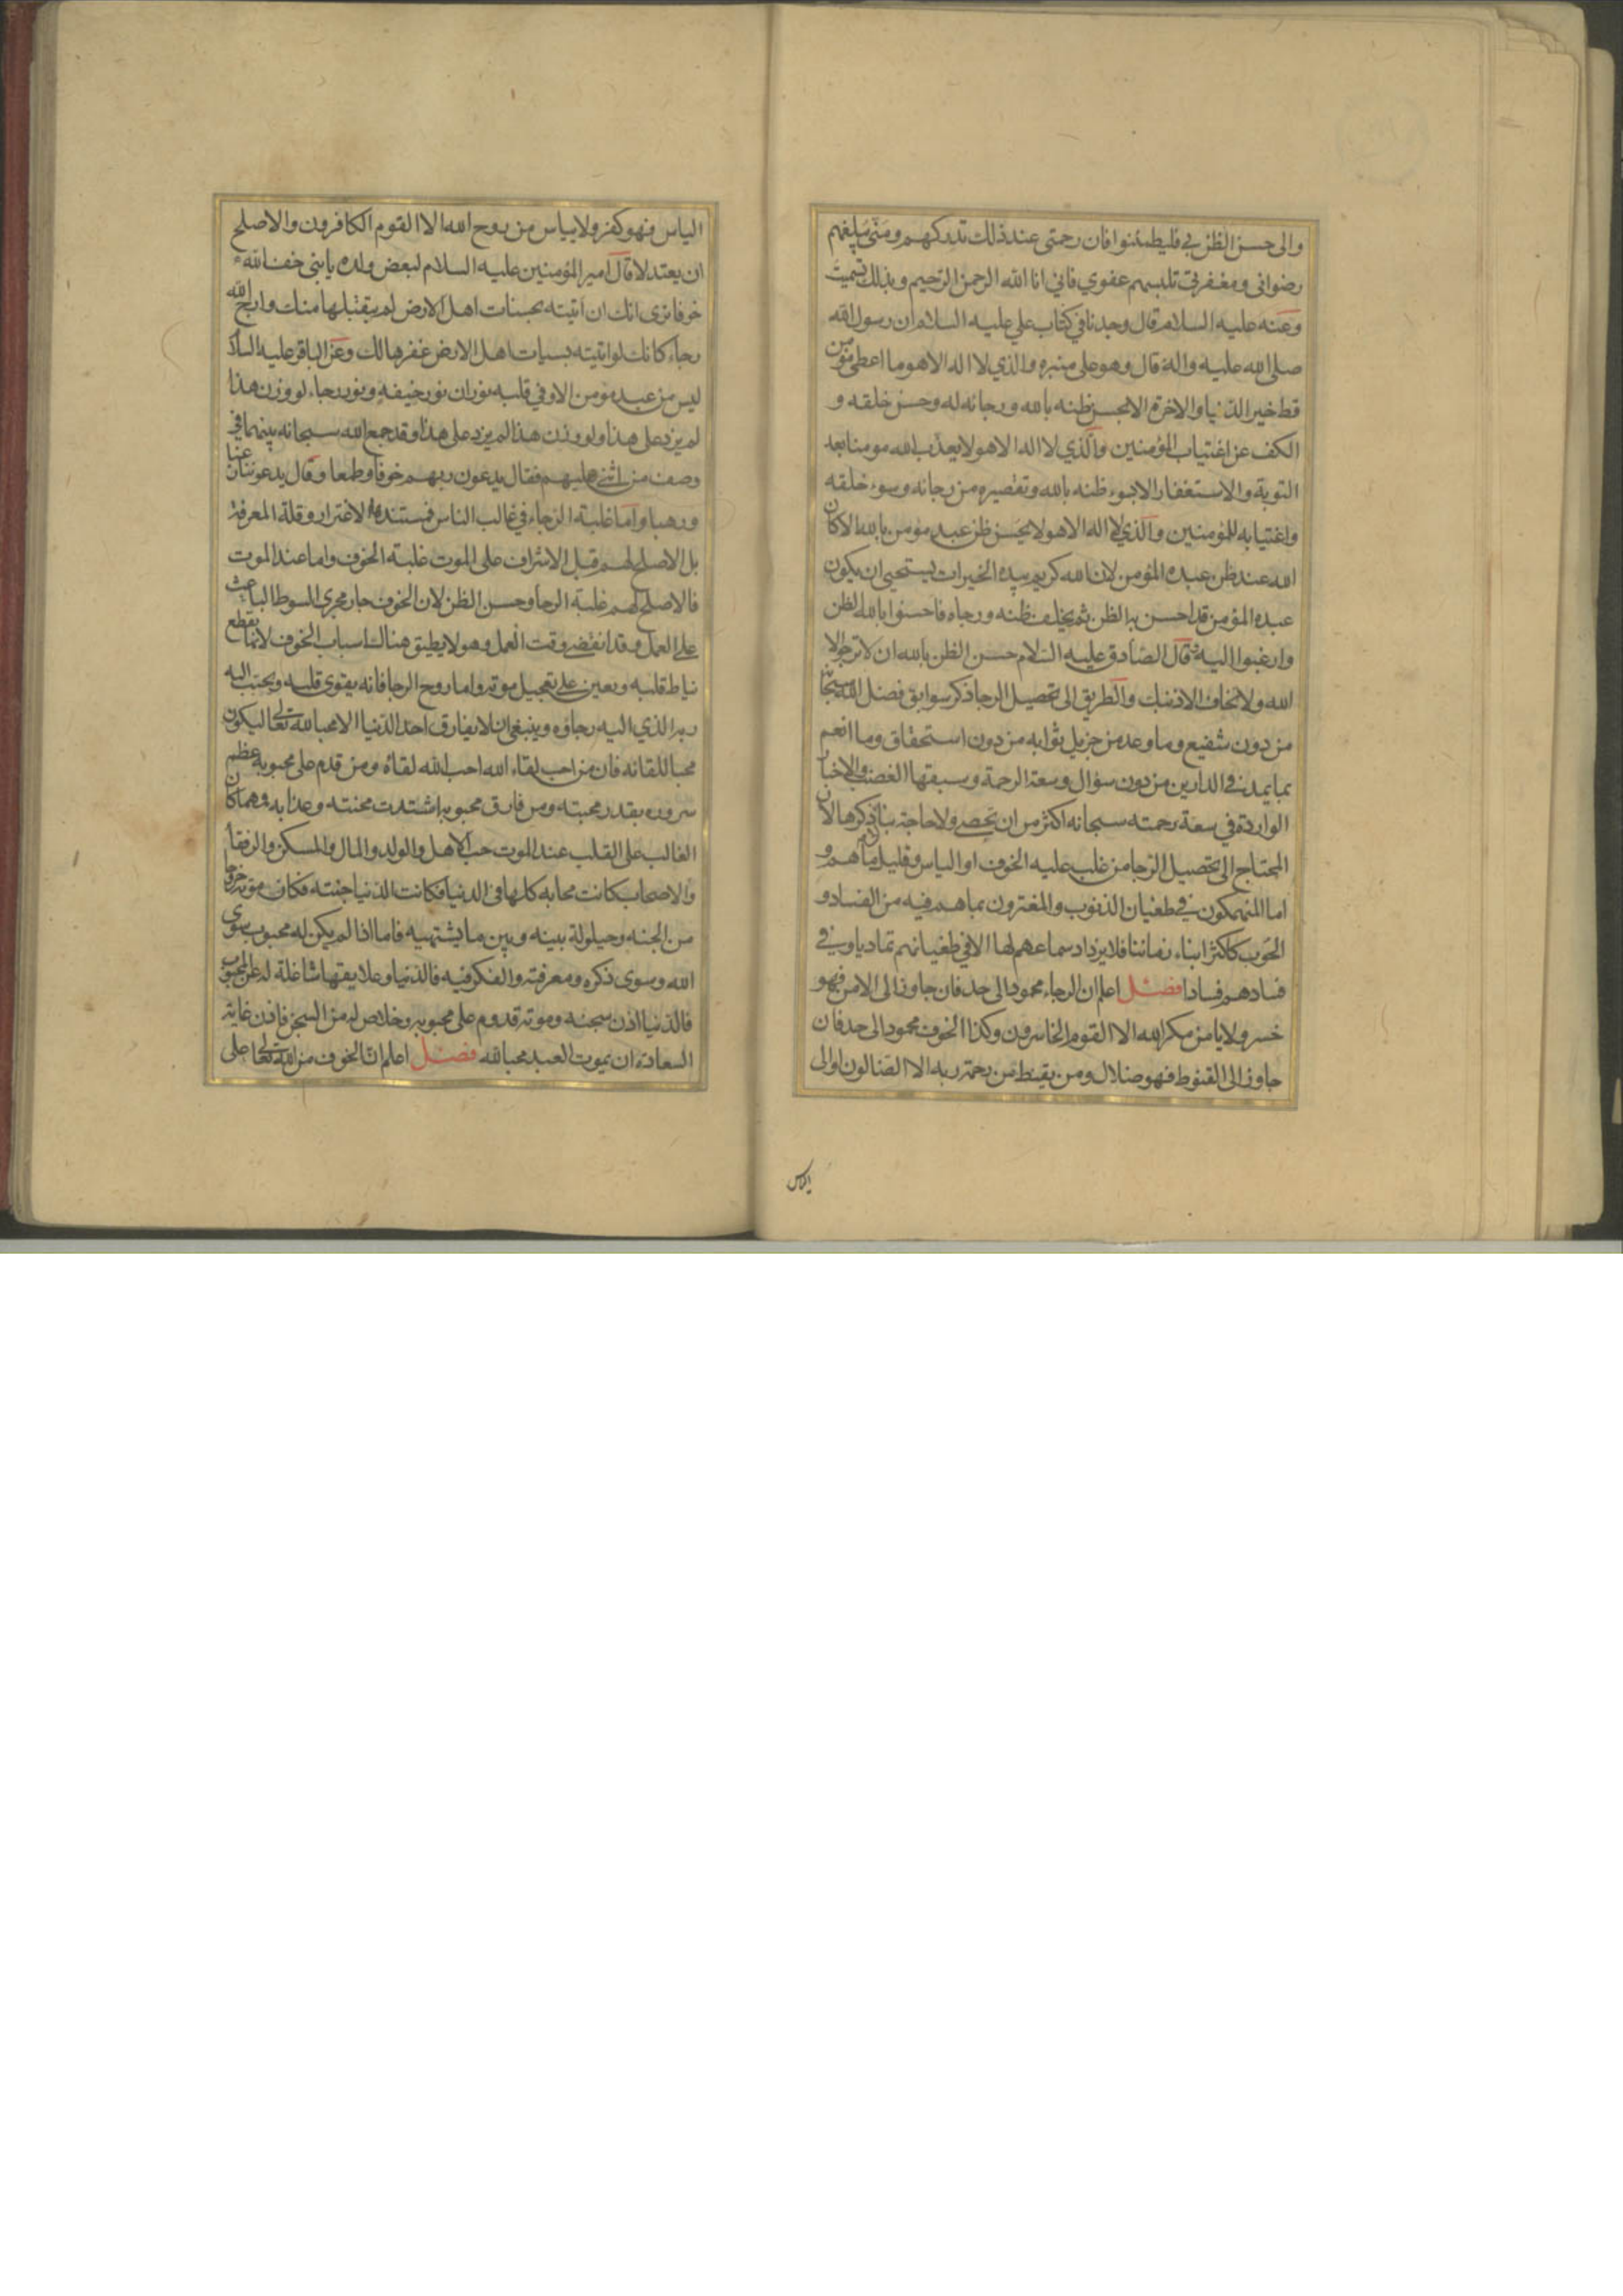 والى حسن الظن بي فليطمئنوا فان رحمتي عند ذلك تدركهم ومنى يبلغهم
رضوانى ومغفرتى تلبسهم عفوي فاني انا الله الرحمن الرحيم وبذلك تسميت
وعنه عليه السلام قال وجدنا في كتاب علي عليه السلام ان رسول الله
صلى الله عليه واله قال وهو على منبره والذي لا اله الا هو ما اعطى مؤمن
قط خير الدنيا والاخرة الا بحسن ظنه بالله ورجائه له وحسن خلقه و
الكف عن اغتياب المؤمنين والذي لا اله الا هو لا يعذب الله مومنا بعد
التوبة والاستغفار الا بسوء ظنه بالله وتقصيره من رجائه وسوء خلقه
واغتيابه للمؤمنين والذي لا اله الا هو لا يحسن ظن عبد مومن بالله الا كان
الله عند ظن عبده المؤمن لان الله كريم بيده الخيرات يستحيي ان يكون
عبده المؤمن قد احسن به الظن ثم يخلف ظنه ورجاه فاحسنوا بالله الظن
وارغبوا اليه قال الصادق عليه السلام حسن الظن بالله ان لا ترجو الا
الله ولا تخاف الا ذنبك والطريق الى تحصيل الرجا ذكر سوابق فضل الله سبحانه
من دون شفيع وما وعد من جزيل ثوابه من دون استحقاق وما انعم
بما يمد في الدارين من دون سؤال وسعة الرحمة وسبقها الغضب والاخبار
الواردة في سعة رحمته سبحانه اكثر من ان تحصى ولا حاجة بنا ذكرها الان لان
المحتاج الى تحصيل الرجا من غلب عليه الخوف او الياس وقليل ما هم و
اما المنهمكون في طغيان الذنوب والمغترون بما هم فيه من الفساد و
الحوب كاكثر ابناء زماننا فلا يزداد سماعهم لها الا في طغيانهم تماديا وفي
فسادهم فسادا فصل اعلم ان الرجاء محمود الى حد فان جاوز الى الامن فهو
خسر ولا يامن مكر الله الا القوم الخاسرون وكذا الخوف محمود الى حد فان
جاوز الى القنوط فهو ضلال ومن يقنط من رحمة ربه الا الضالون او الى
الياس
الياس فهو كفر ولا يياس من روح الله الا القوم الكافرون والاصلح
ان يعتدلا قال امير المؤمنين عليه السلام لبعض ولده يا بنى خف الله
خوفا ترى انك ان اتيته بحسنات اهل الارض لم يتقبلها منك وارج الله
رجاء كانك لو اتيته بسيات اهل الارض غفرها لك وعن الباقر عليه السلام
ليس من عبد مؤمن الا وفي قلبه نوران نور خيفة ونور رجاء لو وزن هذا
لم يزد على هذا ولو وزن هذا لم يزد على هذا وقد جمع الله سبحانه بينهما في
وصف من اثنى عليهم فقال يدعون ربهم خوفا وطمعا وقال يدعوننا رغبا
ورهبا واما غلبة الرجاء في غالب الناس فمستنده الاغترار وقلة المعرفة
بل الاصلح لهم قبل الاشراف على الموت غلبة الخوف واما عند الموت
فالاصلح لهم غلبة الرجا وحسن الظن لان الخوف جار مجرى السوط الباعث
على العمل وقد انقضى وقت العمل وهو لا يطيق هناك اسباب الخوف لانها تقطع
نياط قلبه وتعين على تعجيل موته واما روح الرجا فانه يقوى قلبه ويحبب اليه
ربه الذي اليه رجاؤه وينبغى ان لا يفارق احد الدنيا الا محبا لله تعالى ليكون
محبا للقائه فان من احب لقاء الله احب الله لقاه ومن قدم على محبوبه عظم
سروره بقدر محبته ومن فارق محبوبه اشتدت محنته وعذابه فمهما كان
الغالب على القلب عند الموت حب الاهل والولد والمال والمسكن والرفقا
والاصحاب كانت محابه كلها في الدنيا فكانت الدنيا جنته فكان موته خروجا
من الجنه وحيلولة بينه وبين ما يشتهيه فاما اذا لم يكن له محبوب سوى
الله وسوى ذكره ومعرفته والفكر فيه فالدنيا وعلايقها شاغلة له عن المحبوب
فالدنيا اذن سجنه وموته قدوم على محبوبه وخلاص له من السجن فاذن غاية
السعادة ان يموت العبد محبا لله فصل اعلم ان الخوف من الله تعالى على